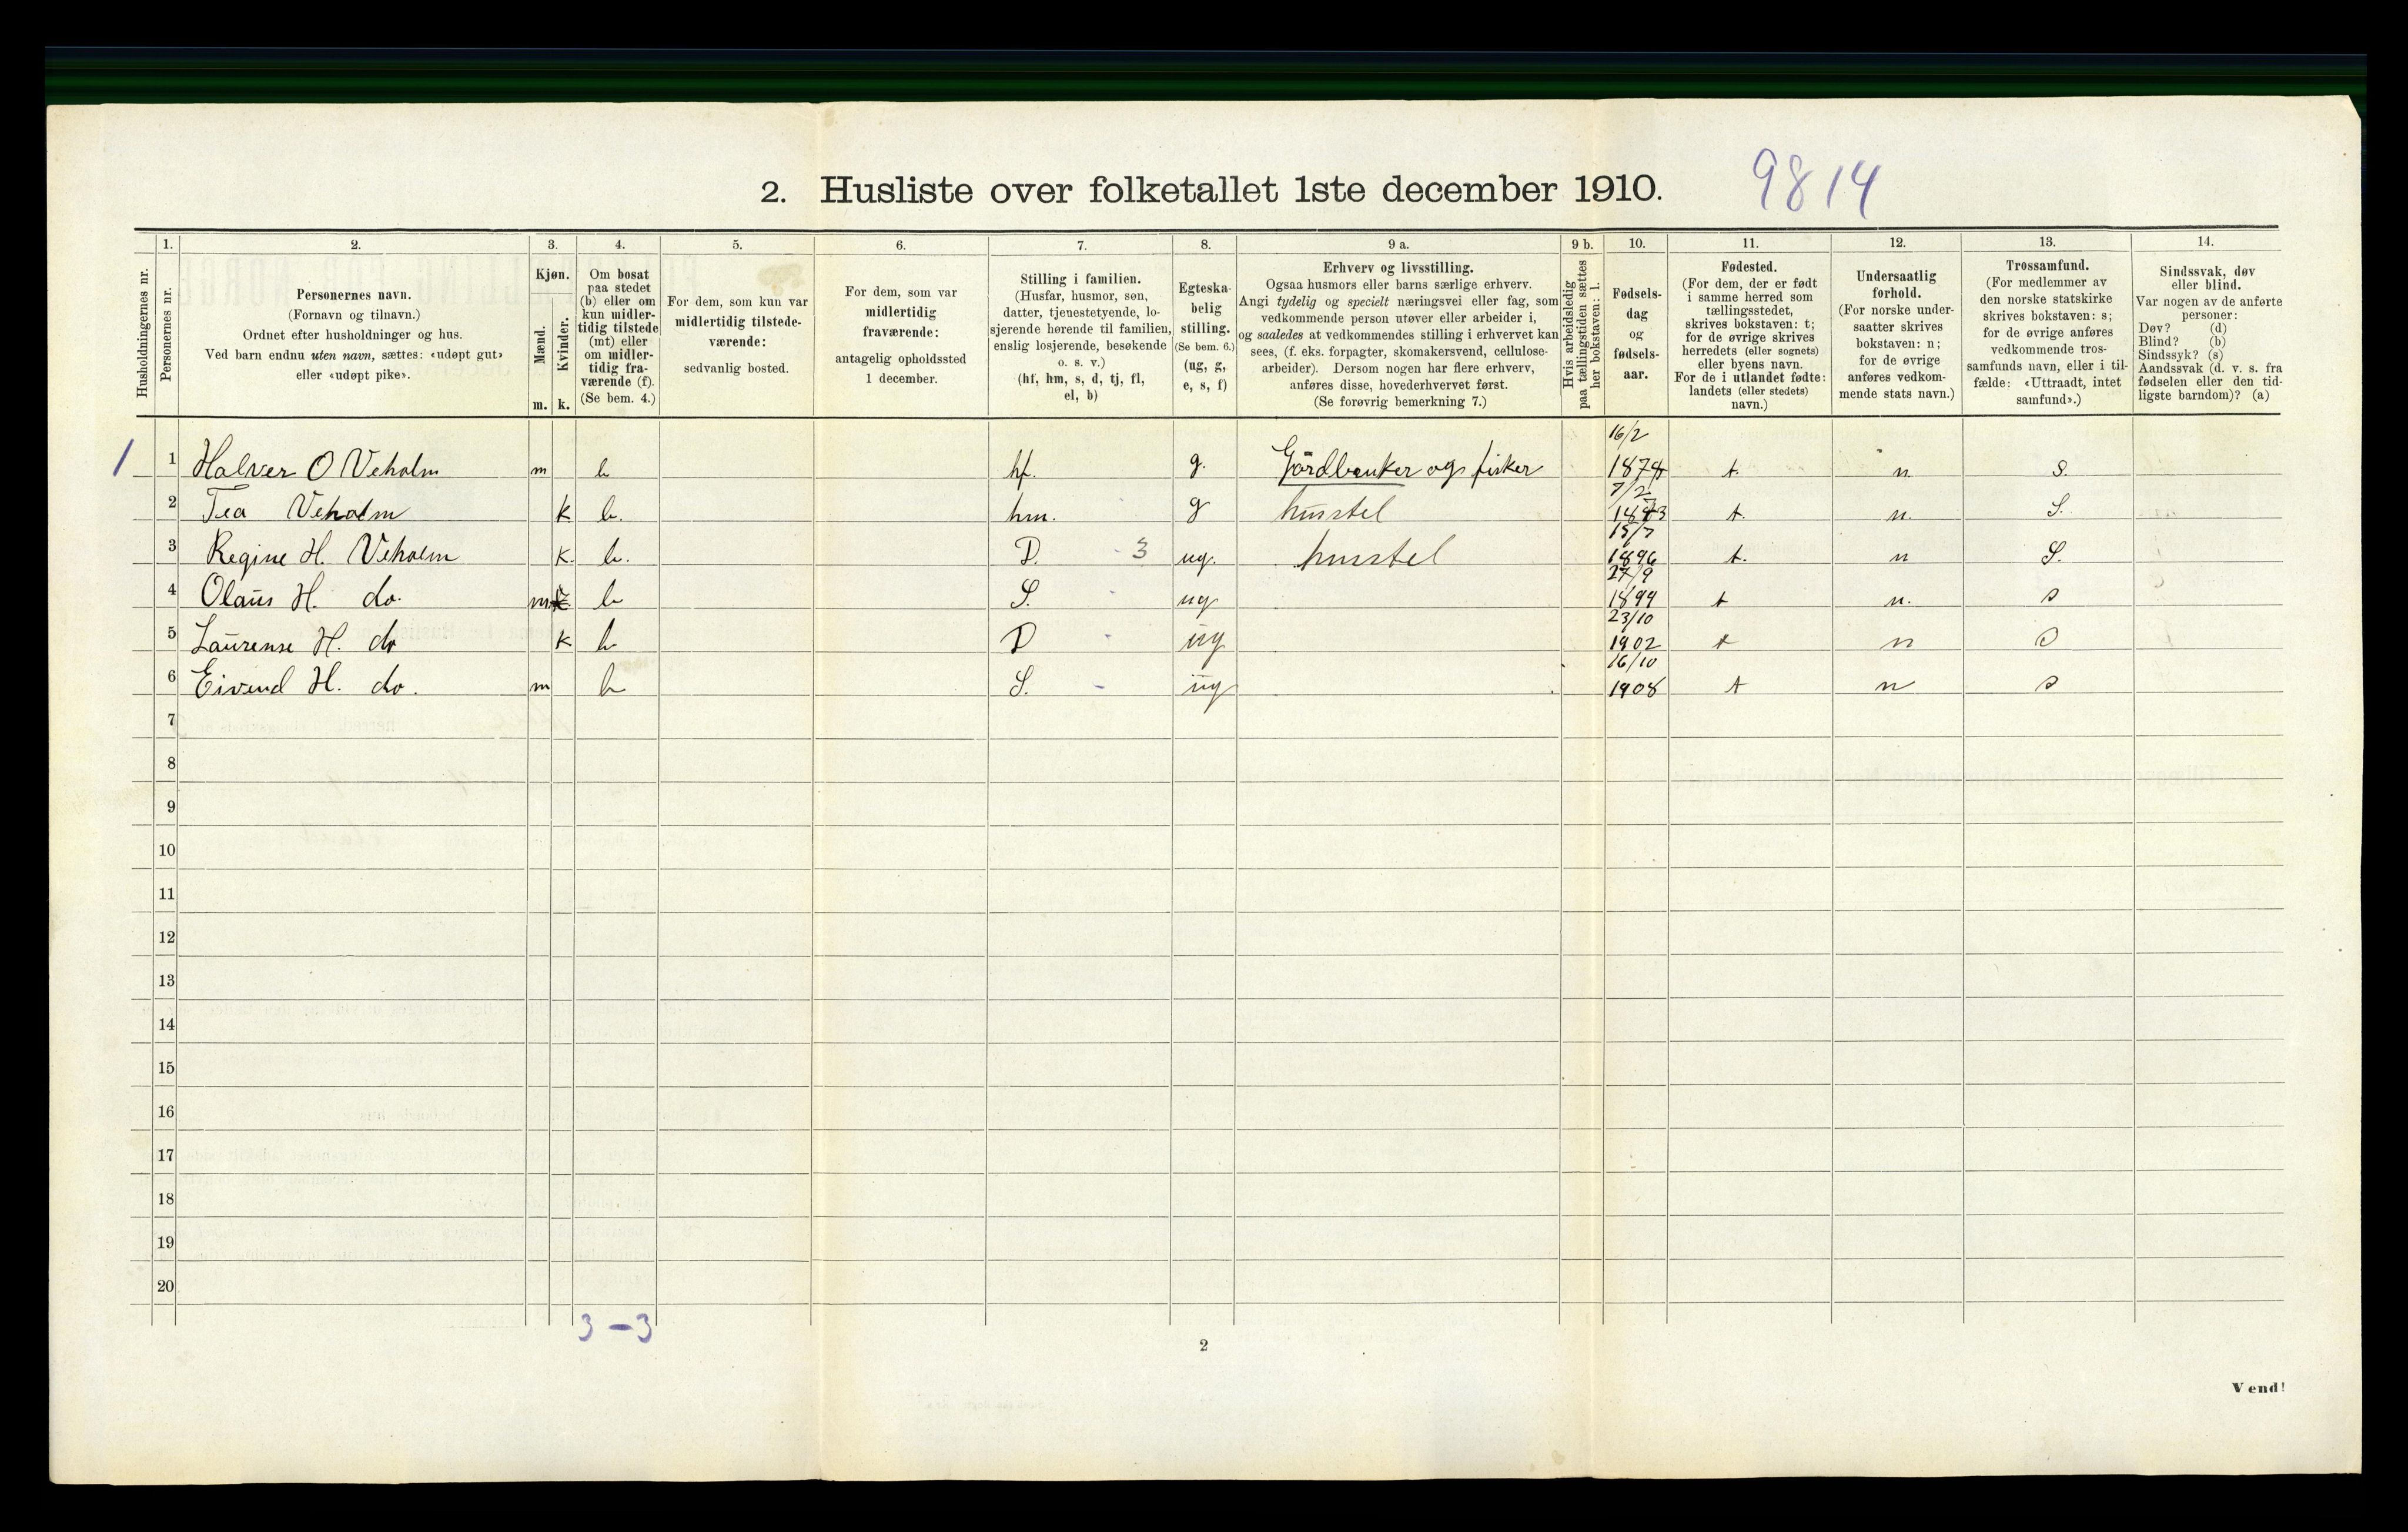 2. Husliste over folketallet 1ste december 1910. 9814
Husholdningernes nr.
1. Personernes nr.
2. Personernes navn.
(Fornavn og tilnavn.)
Ordnet efter husholdninger og hus.
Ved barn endnu uten navn, sættes: «udøpt gut»
eller «udøpt pike».
3. Kjøn.
Mænd. m.
Kvinder. k.
4. Om bosat
paa stedet
(b) eller om
kun midler-
tidig tilstede
(mt) eller
om midler-
tidig fra-
værende (f).
(Se bem. 4.)
5. For dem, som kun var
midlertidig tilstede-
værende:
sedvanlig bosted.
6. For dem, som var
midlertidig
fraværende:
antagelig opholdssted
1 december.
7. Stilling i familien.
(Husfar, husmor, søn,
datter, tjenestetyende, lo-
sjerende hørende til familien,
enslig losjerende, besøkende
o. s. v.)
(hf, hm, s, d, tj, fl,
el, b)
8. Egteska-
belig
stilling.
(Se bem. 6.)
(ug, g,
e, s, f)
9 a. Erhverv og livsstilling.
Ogsaa husmors eller barns særlige erhverv.
Angi tydelig og specielt næringsvei eller fag, som
vedkommende person utøver eller arbeider i,
og saaledes at vedkommendes stilling i erhvervet kan
sees, (f. eks. forpagter, skomakersvend, cellulose-
arbeider). Dersom nogen har flere erhverv,
anføres disse, hovederhvervet først.
(Se forøvrig bemerkning 7.)
9 b. Hvis arbeidsledig
paa tællingstiden sættes
her bokstaven: l.
10. Fødsels-
dag
og
fødsels-
aar.
11. Fødested.
(For dem, der er født
i samme herred som
tællingsstedet,
skrives bokstaven: t;
for de øvrige skrives
herredets (eller sognets)
eller byens navn.
For de i utlandet fødte:
landets (eller stedets)
navn.)
12. Undersaatlig
forhold.
(For norske under-
saatter skrives
bokstaven: n;
for de øvrige
anføres vedkom-
mende stats navn.)
13. Trossamfund.
(For medlemmer av
den norske statskirke
skrives bokstaven: s;
for de øvrige anføres
vedkommende tros-
samfunds navn, eller i til-
fælde: «Uttraadt, intet
samfund».)
14. Sindssvak, døv
eller blind.
Var nogen av de anførte
personer:
Døv? (d)
Blind? (b)
Sindssyk? (s)
Aandssvak (d. v. s. fra
fødselen eller den tid-
ligste barndom)? (a)
1 1 Halver O Veholm m b hf. g. Gårdbruker og fisker 16/2 1874 t. n. S.
2 Tea Veholm k b. hm. g hustel 7/2 1873 t. n. S.
3 Regine H. Veholm k. b. D. 3 ug. hustel 15/7 1896 t. n S.
4 Olaus H. do. m b S. ug 27/9 1899 t n. s
5 Laurense H. do k b D ug 23/10 1902 t n s
6 Eivend H. do. m b S. ug 16/10 1908 t n s
7
8
9
10
11
12
13
14
15
16
17
18
19
20
3 - 3
2
Vend!